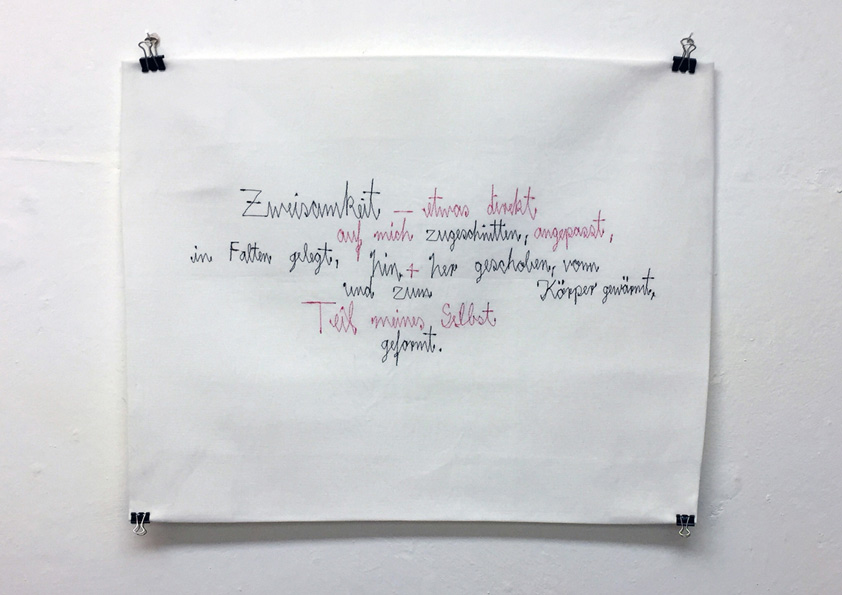 Zweisamkeit – etwas direkt
auf mich zugeschnitten, angepasst,
in Falten gelegt, hin + her geschoben, vom
und zum Körper gewärmt,
Teil meines Selbst
geformt.